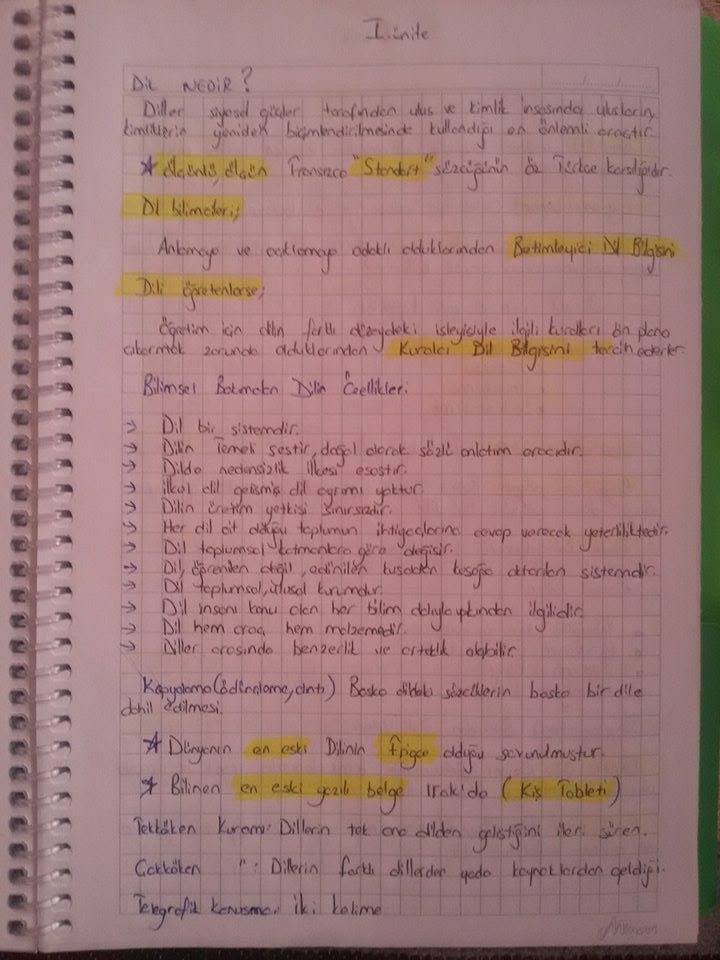 I. ünite
DİL NEDİR?
Diller siyasal güçler tarafından ulus ve kimlik inşasında, ulusların,
kimliklerin yeniden biçimlendirilmesinde kullandığı en önemli araçtır.
★ Ölçünlü, ölçün Fransızca "Standart" sözcüğünün öz Türkçe karşılığıdır.
Dil bilimcileri;
Anlamaya ve açıklamaya odaklı olduklarından Betimleyici Dil Bilgisini
Dili öğretenlerse;
Öğretim için dilin farklı düzeydeki işleyişiyle ilgili kuralları ön plana
çıkarmak zorunda olduklarından Kuralcı Dil Bilgisini tercih ederler.
Bilimsel Bakımdan Dilin Özellikleri:
→ Dil bir sistemdir.
→ Dilin Temeli sestir, doğal olarak sözlü anlatım aracıdır.
→ Dilde nedensizlik ilkesi esastır.
→ İlkel dil gelişmiş dil ayrımı yoktur.
→ Dilin üretim yetkisi sınırsızdır.
→ Her dil ait olduğu toplumun ihtiyaçlarına cevap verecek yeterliliktedir.
→ Dil toplumsal katmanlara göre değişir.
→ Dil, öğrenilen değil, edinilen kuşaktan kuşağa aktarılan sistemdir.
→ Dil toplumsal, ulusal kurumdur.
→ Dil insanı konu olan her bilim dalıyla yakından ilgilidir.
→ Dil hem araç, hem malzemedir.
→ Diller arasında benzerlik ve ortaklık olabilir.
Kopyalama (ödünçleme, alıntı) Başka dildeki sözcüklerin başka bir dile
dahil edilmesi.
★ Dünyanın en eski Dilinin Frigce olduğu savunulmuştur.
★ Bilinen en eski yazılı belge Irak'da (Kiş Tableti)
Tekköken Kuramı: Dillerin tek ana dilden geliştiğini ileri süren.
Çokköken " : Dillerin farklı dillerden yada kaynaklardan geldiği.
Telegrafik konuşma: iki kelime